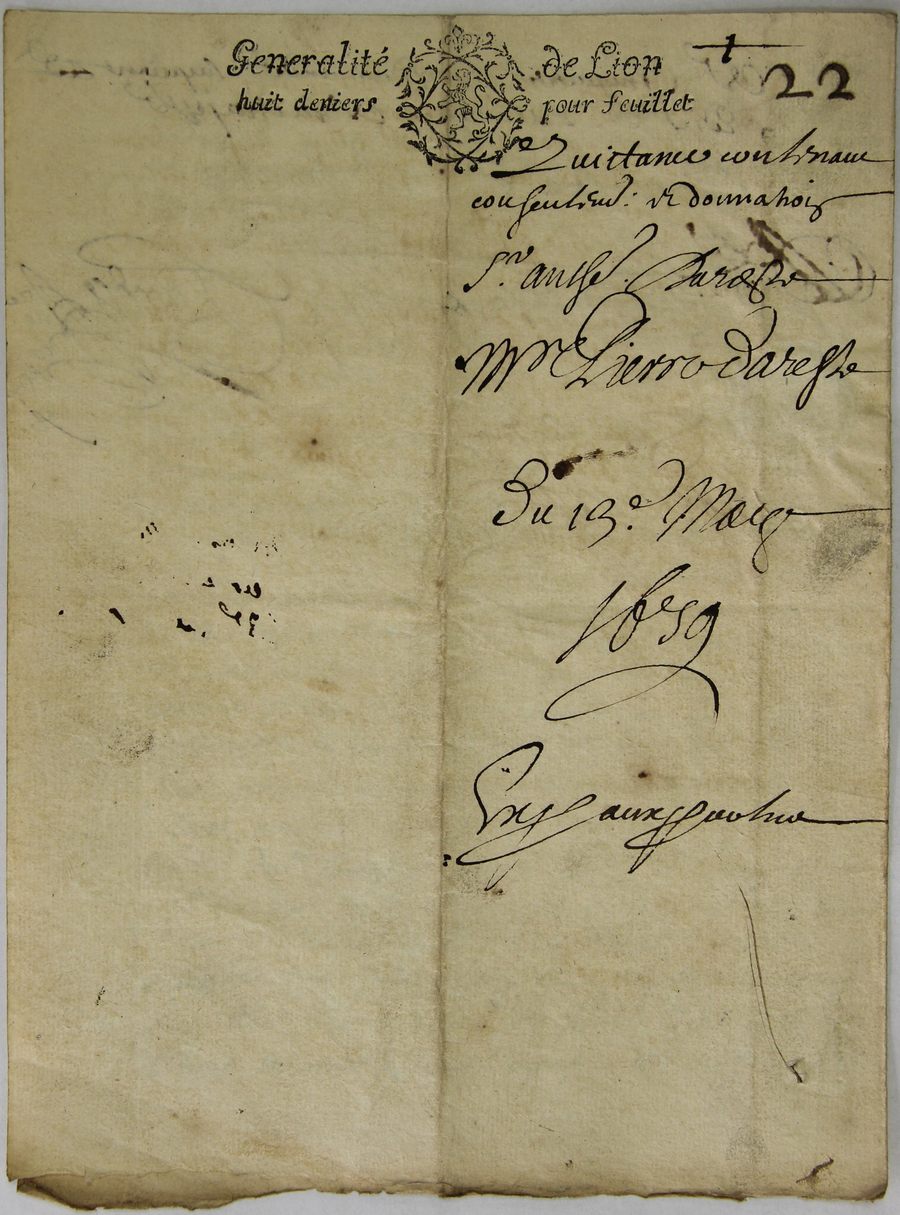 Generalité de Lion
huit deniers pour feuillet
22
Quittance contenant
consentem.t et donnation
S.r Anthe. Dareste
M.re Pierre Dareste
Du 19.e Mars
1659